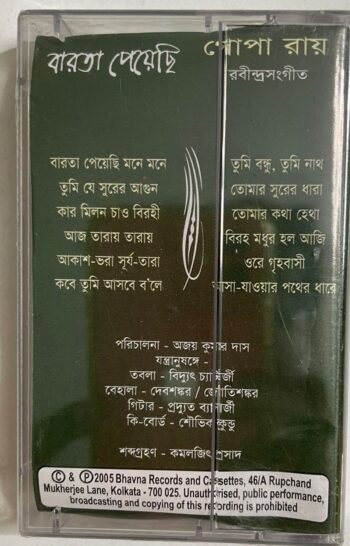 বারতা পেয়েছি
গোপা রায়
রবীন্দ্রসংগীত
বারতা পেয়েছি মনে মনে
তুমি যে সুরের আগুন
কার মিলন চাও বিরহী
আজ তারায় তারায়
আকাশ-ভরা সূর্য-তারা
কবে তুমি আসবে ব'লে
তুমি বন্ধু, তুমি নাথ
তোমার সুরের ধারা
তোমার কথা হেথা
বিরহ মধুর হল আজি
ওরে গৃহবাসী
আসা-যাওয়ার পথের ধারে
পরিচালনা - অজয় কুমার দাস
যন্ত্রানুষঙ্গে -
তবলা - বিদ্যুৎ চ্যাটার্জী
বেহালা - দেবশঙ্কর / জ্যোতিশঙ্কর
গিটার - প্রদ্যুত ব্যানার্জী
কি-বোর্ড - শৌভিক কুন্ডু
শব্দগ্রহণ - কমলজিৎ প্রসাদ
© & ℗ 2005 Bhavna Records and Cassettes, 46/A Rupchand
Mukherjee Lane, Kolkata - 700 025. Unauthorised, public performance,
broadcasting and copying of this recording is prohibited